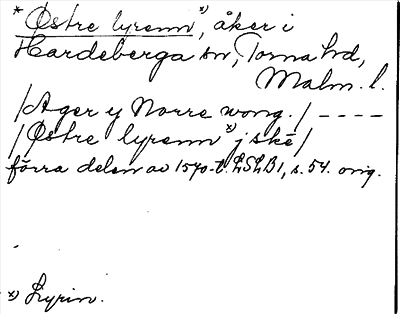 * Østre lyremn x), åker i
Hardeberga sn, Torna hd,
Malm. l.
/Ager y Norre wong./ ----
/Østre lyremn x) j skē/
förra delen av 1570-t. LSLB1, s. 54. orig.
x) Lyrin.